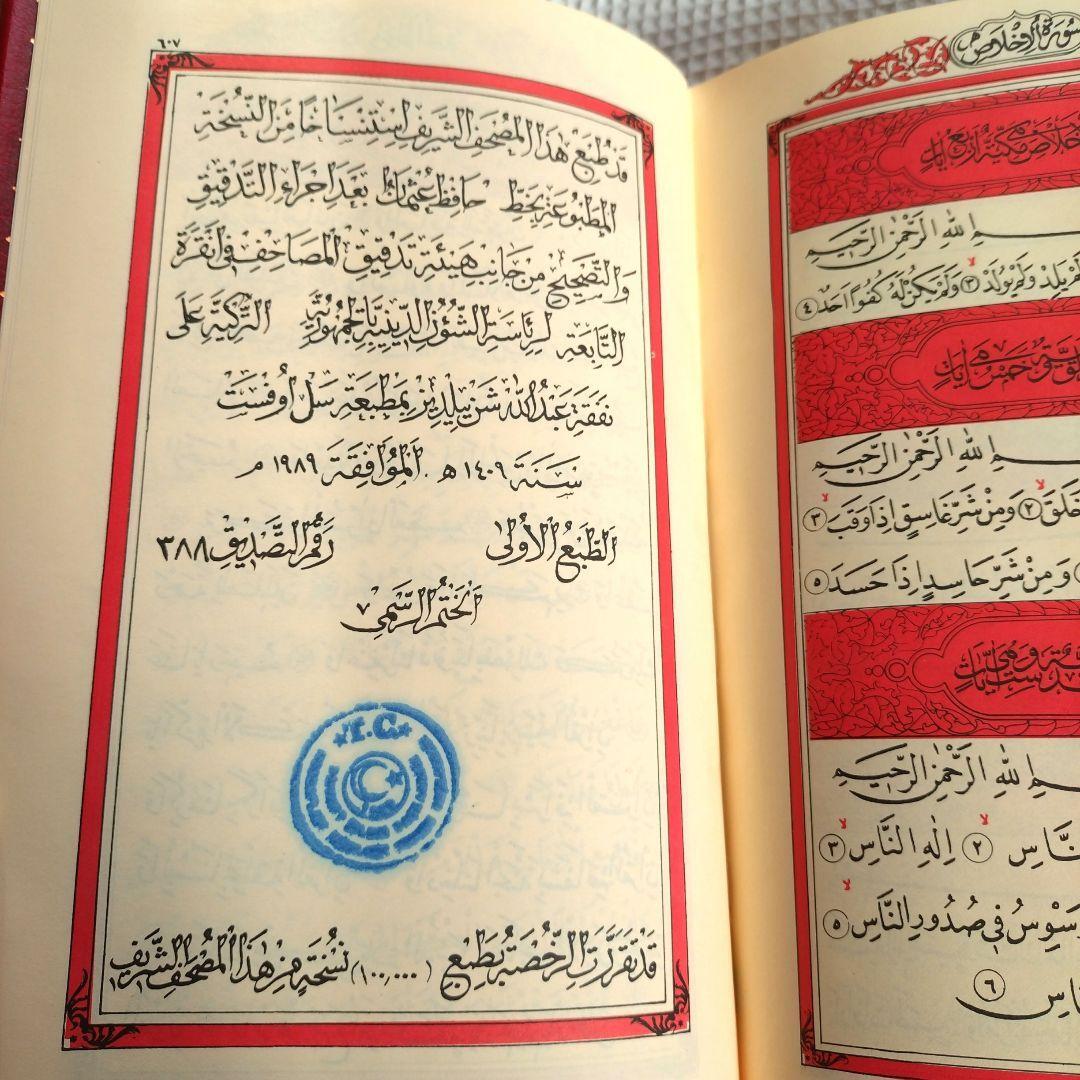 ٦٠٧
قَدْ طُبِعَ هٰذَا الْمُصْحَفُ الشَّرِيفُ اِسْتِنْسَاخًا مِنَ النُّسْخَةِ
الْمَطْبُوعَةِ بِخَطِّ حَافِظْ عُثْمَانْ بَعْدَ اِجْرَاءِ التَّدْقِيقِ
وَالتَّصْحِيحِ مِنْ جَانِبِ هَيْئَةِ تَدْقِيقِ الْمَصَاحِفِ فِى اَنْقَرَةَ
التَّابِعَةِ لِرِئَاسَةِ الشُّؤُنِ الدِّينِيَّةِ بِالْجُمْهُورِيَّةِ التُّرْكِيَّةِ عَلَى
نَفَقَةِ عَبْدُ اللّٰهْ شَنْ يِيلْدِيزْ بِمَطْبَعَةِ سَلْ اُوفْسَتْ
سَنَةَ ١٤٠٩ ھ. الْمُوَافِقَةَ ١٩٨٩ م
الطَّبْعُ الْاُولٰى رَقْمُ التَّصْدِيقِ ٣٨٨
الْخَتْمُ الرَّسْمِى
T.C.
قَدْ تَقَرَّرَتِ الرُّخْصَةُ بِطَبْعِ (١٠٠,٠٠٠) نُسْخَةٍ مِنْ هٰذَا الْمُصْحَفِ الشَّرِيفِ
سُورَةُ الْاِخْلَاصِ
مَكِّيَّةٌ اَرْبَعُ اٰيَاتٍ
اللّٰهِ الرَّحْمٰنِ الرَّحِيمِ
لَمْ يَلِدْ وَلَمْ يُولَدْ ٣ وَلَمْ يَكُنْ لَهُ كُفُوًا اَحَدٌ ٤
خَمْسُ اٰيَاتٍ
اللّٰهِ الرَّحْمٰنِ الرَّحِيمِ
خَلَقَ ٢ وَمِنْ شَرِّ غَاسِقٍ اِذَا وَقَبَ ٣
وَمِنْ شَرِّ حَاسِدٍ اِذَا حَسَدَ ٥
اللّٰهِ الرَّحْمٰنِ الرَّحِيمِ
النَّاسِ ٢ اِلٰهِ النَّاسِ ٣
صُدُورِ النَّاسِ ٥
٦